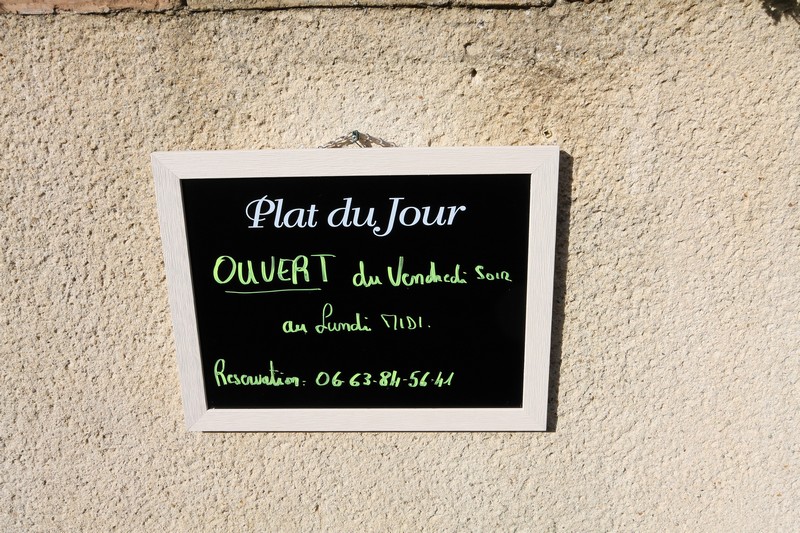 Plat du Jour
OUVERT du Vendredi Soir
au Lundi MIDI.
Reservation: 06-63-84-56-41